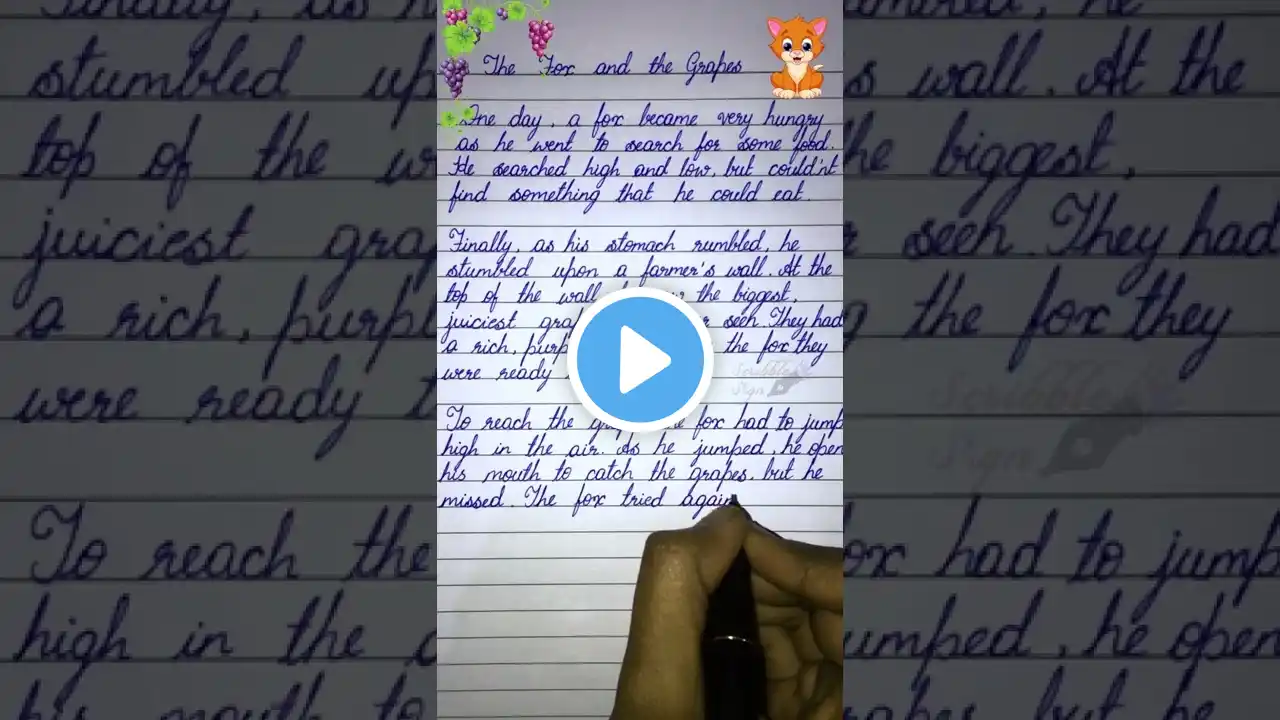 The Fox and the Grapes
One day, a fox became very hungry
as he went to search for some food.
He searched high and low, but could'nt
find something that he could eat.
Finally, as his stomach rumbled, he
stumbled upon a farmer's wall. At the
top of the wall, the biggest,
juiciest seen. They had
a rich, the fox they
were ready
To reach the fox had to jump
high in the air. As he jumped, he open
his mouth to catch the grapes, but he
missed. The fox tried again
Scribble
Sign